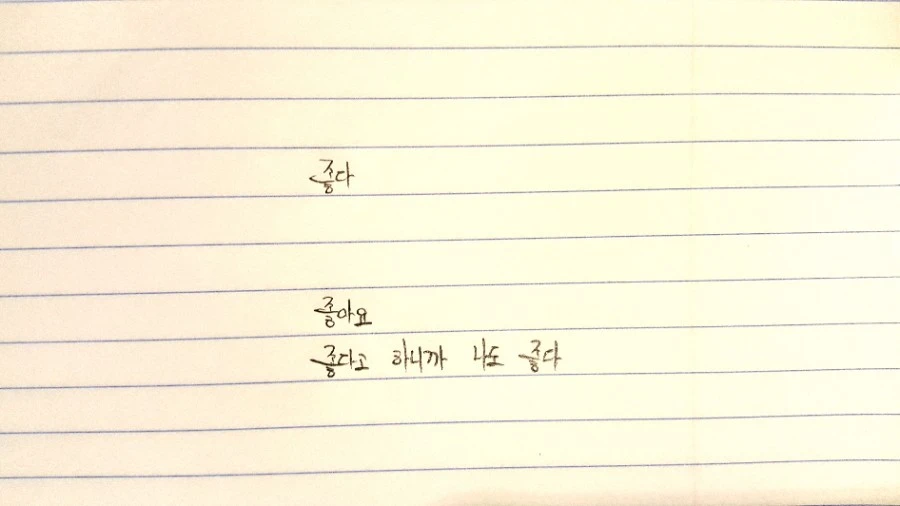 좋다
좋아요
좋다고 하니까 나도 좋다